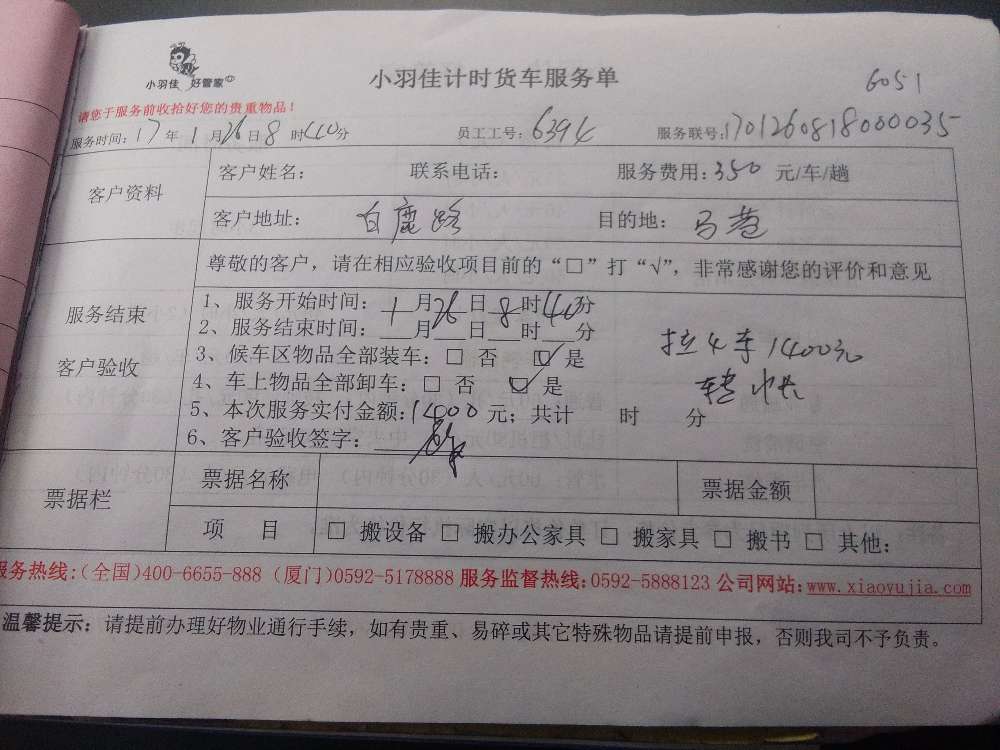 小羽佳 好管家
小羽佳计时货车服务单
6051
请您于服务前收拾好您的贵重物品!
服务时间:17年1月26日8时40分 员工工号:6394 服务联号:1701260818000035
客户资料
客户姓名: 联系电话: 服务费用:350 元/车/趟
客户地址: 白鹿路 目的地: 马巷
尊敬的客户,请在相应验收项目前的“□”打“√”,非常感谢您的评价和意见
服务结束
客户验收
1、服务开始时间: 1月26日8时40分
2、服务结束时间:___月___日___时___分
3、候车区物品全部装车:□ 否 ☑ 是
4、车上物品全部卸车:□ 否 ☑ 是
5、本次服务实付金额:14000元;共计 时 分
6、客户验收签字:
拉4车1400元
票据栏
票据名称 票据金额
项 目 □ 搬设备 □ 搬办公家具 □ 搬家具 □ 搬书 □ 其他:
服务热线:(全国)400-6655-888 (厦门)0592-5178888 服务监督热线:0592-5888123 公司网站:www.xiaoyujia.com
温馨提示:请提前办理好物业通行手续,如有贵重、易碎或其它特殊物品请提前申报,否则我司不予负责。